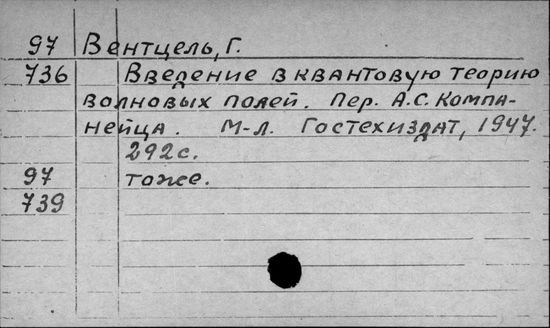 97 Вентцель, Г.
736 Введение в квантовую теорию
волновых полей. Пер. А.С. Компа-
нейца. М-л. Гостехиздат, 1947.
292с.
97 тоже.
739